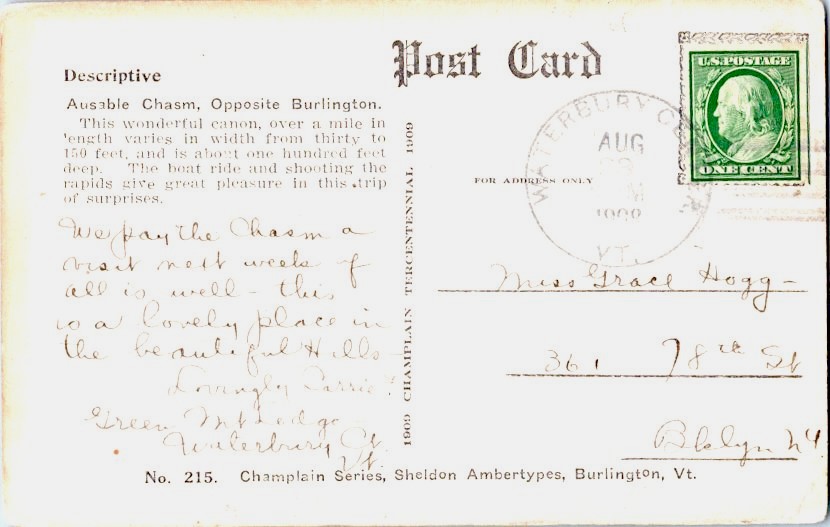 Descriptive
Ausable Chasm, Opposite Burlington.
This wonderful canon, over a mile in
length varies in width from thirty to
150 feet, and is about one hundred feet
deep. The boat ride and shooting the
rapids give great pleasure in this trip
of surprises.
We pay the Chasm a
visit next week if
all is well - this
is a lovely place in
the beautiful Hills
Lovingly Carrie
Green Mt
Waterbury Ct.
Vt.
1909 CHAMPLAIN TERCENTENNIAL 1909
Post Card
FOR ADDRESS ONLY
WATERBURY
AUG
VT.
U.S. POSTAGE
ONE CENT
Miss Grace Hogg -
361 78th St
Bklyn N.Y.
No. 215. Champlain Series, Sheldon Ambertypes, Burlington, Vt.